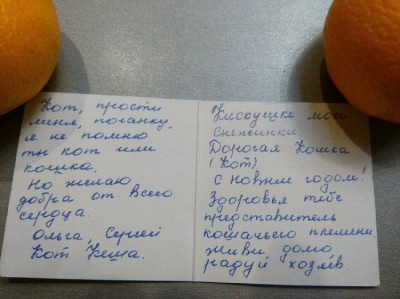 Кот, прости
меня, поганку,
я не помню
ты кот или
кошка.
Но желаю
добра от всего
сердца.
Ольга, Сергей
Кот Кеша.
Кискушке моей
Снежиной.
Дорогая Кошка
(Кот)
С Новым годом!
Здоровья тебе
представитель
кошачьего племени.
живи домо
радуй хозяев